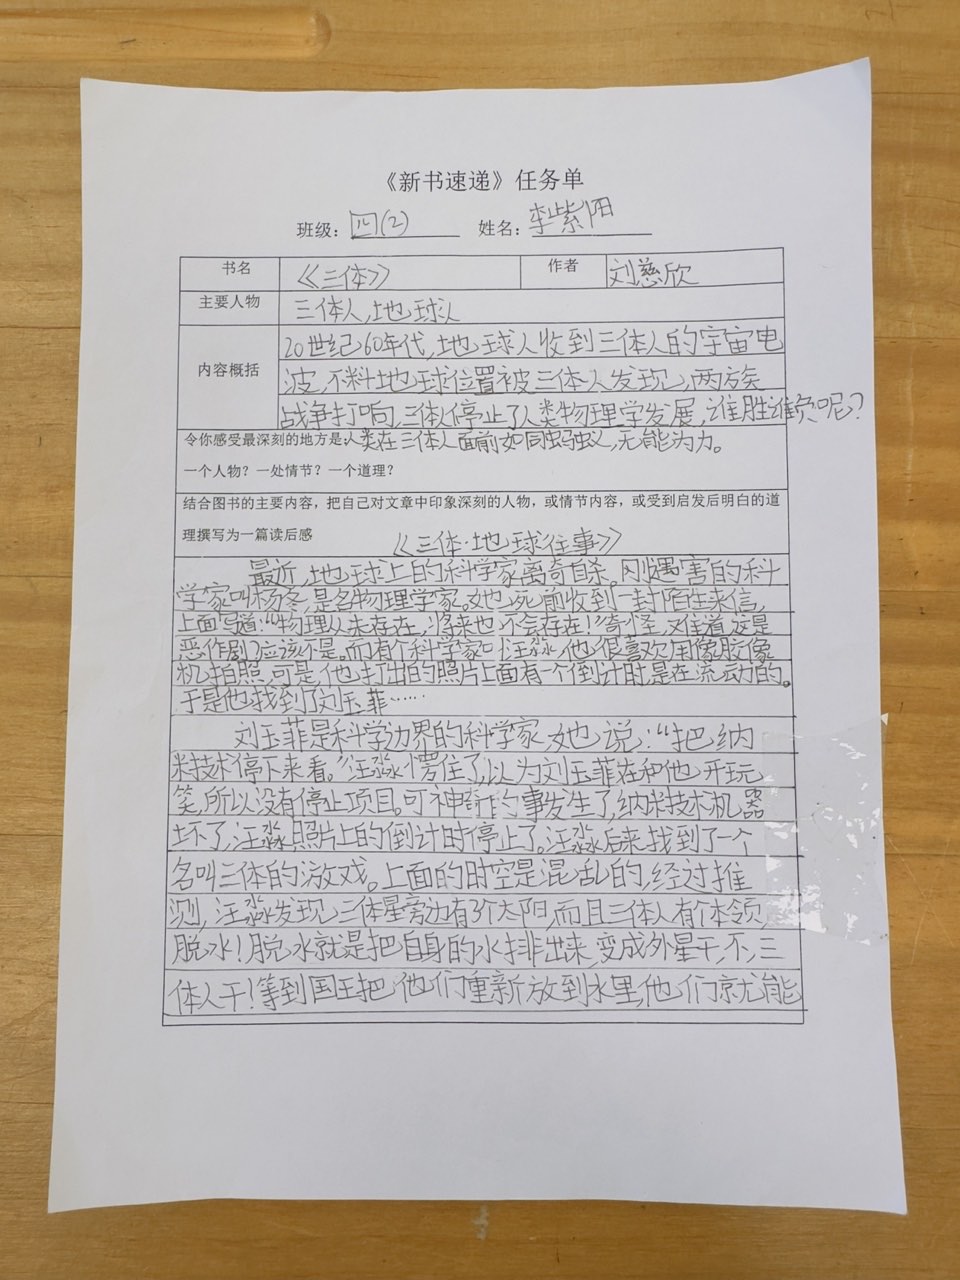 《新书速递》任务单
班级：四(2) 姓名：李紫阳
书名 《三体》 作者 刘慈欣
主要人物 三体人,地球人
20世纪60年代,地球人收到三体人的宇宙电
内容概括 波,不料地球位置被三体人发现,两族
战争打响,三体人停止了人类物理学发展,谁胜谁负呢?
令你感受最深刻的地方是:人类在三体人面前如同蚂蚁,无能为力。
一个人物？一处情节？一个道理？
结合图书的主要内容，把自己对文章中印象深刻的人物，或情节内容，或受到启发后明白的道
理撰写为一篇读后感
《三体·地球往事》
最近,地球上的科学家离奇自杀。刚遇害的科
学家叫杨冬,是名物理学家。她死前收到一封陌生来信,
上面写道:“物理从未存在,将来也不会存在!”奇怪,难道这是
恶作剧?应该不是。而有个科学家叫汪淼,他很喜欢用像胶像
机拍照,可是,他打出的照片上面有一个倒计时,是在流动的。
于是他找到了刘玉菲……
刘玉菲是科学边界的科学家,她说:“把纳
米技术停下来看。”汪淼愣住了,以为刘玉菲在和他开玩
笑,所以没有停止项目。可神奇的事发生了,纳米技术机器
坏了,汪淼照片上的倒计时停止了。汪淼后来找到了一个
名叫三体的游戏。上面的时空是混乱的,经过推
测,汪淼发现三体星旁边有3个太阳,而且三体人有个本领,
脱水!脱水就是把自身的水排出来,变成外星干,不,三
体人干!等到国王把他们重新放到水里,他们就能